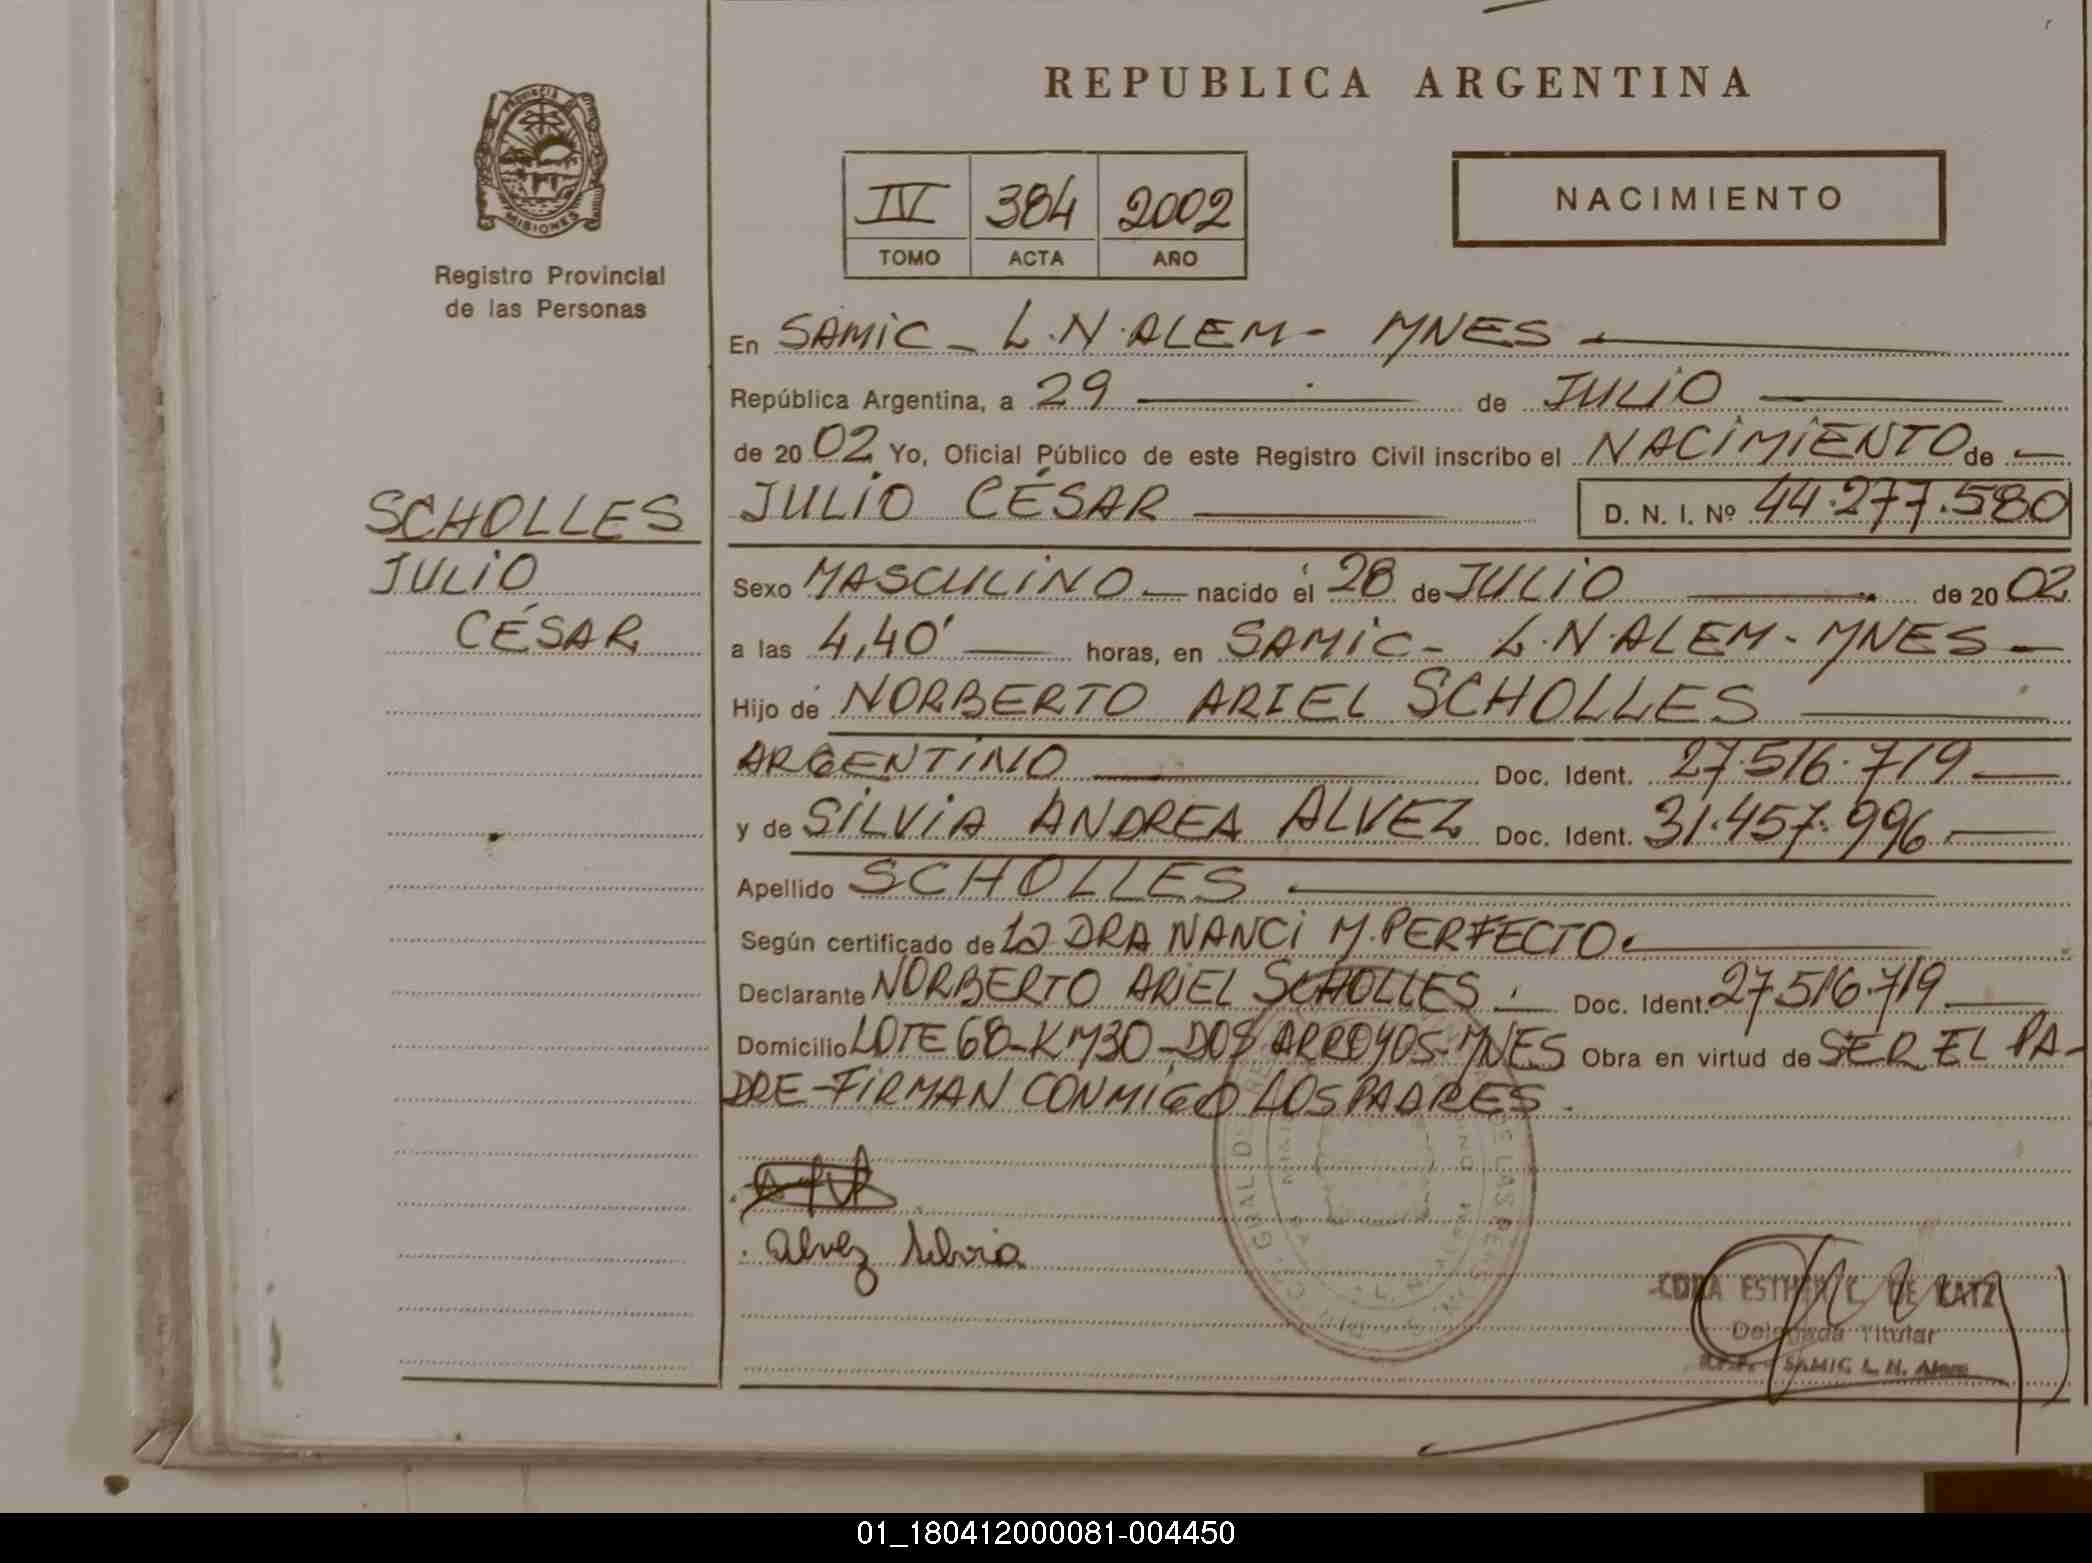 REPUBLICA ARGENTINA
PROVINCIA DE
MISIONES
Registro Provincial
de las Personas
IV 384 2002
TOMO ACTA AÑO
NACIMIENTO
En SAMIC - L.N. ALEM - MNES
República Argentina, a 29 de JULIO
de 2002 Yo, Oficial Público de este Registro Civil inscribo el NACIMIENTO de
JULIO CÉSAR D. N. I. Nº 44.277.580
SCHOLLES
JULIO
CÉSAR
Sexo MASCULINO nacido el 28 de JULIO de 2002
a las 4,40' horas, en SAMIC - L.N. ALEM - MNES
Hijo de NORBERTO ARIEL SCHOLLES
ARGENTINO Doc. Ident. 27.516.719
y de SILVIA ANDREA ALVEZ Doc. Ident. 31.457.996
Apellido SCHOLLES
Según certificado de la DRA NANCI M. PERFECTO
Declarante NORBERTO ARIEL SCHOLLES Doc. Ident. 27.516.719
Domicilio LOTE 68 - KM30 - DOS ARROYOS - MNES Obra en virtud de SER EL PA-
DRE - FIRMAN CONMIGO LOS PADRES.
Alvez Silvia
DE KATZ
Delegada Titular
SAMIC L. N. Alem
01_180412000081-004450